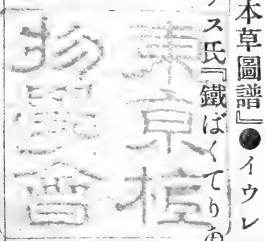 本草圖譜』●イウレ
ス氏『鐵ばくてりあ
東京植
物學會